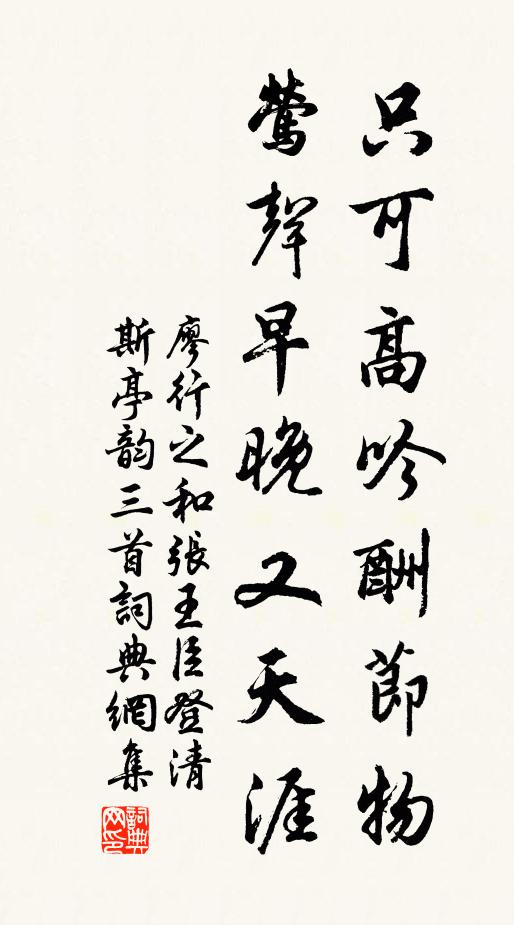 只可高吟酬節物
鶯聲早晚又天涯
廖行之和張王臣登清
斯亭韵三首詞典網集
詞典网印